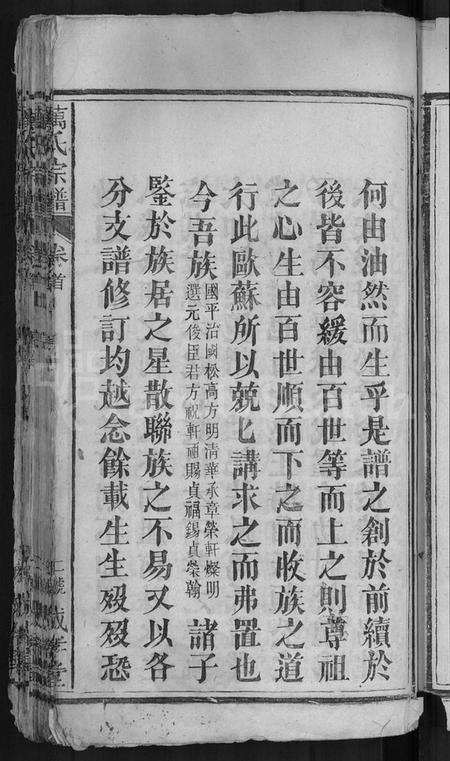 何由油然而生乎是譜之創於前續於
後皆不容緩由百世等而上之則尊祖
之心生由百世順而下之而收族之道
行此歐蘇所以兢匕講求之而弗置也
今吾族國平治國松高方明清華承章榮軒燦明選元俊臣君方祝軒福賜貞福錫貞榮翰諸子
鑒於族居之星散聯族之不易又以各
分支譜修訂均越念餘載生生殁殁恐
萬氏宗譜
卷首